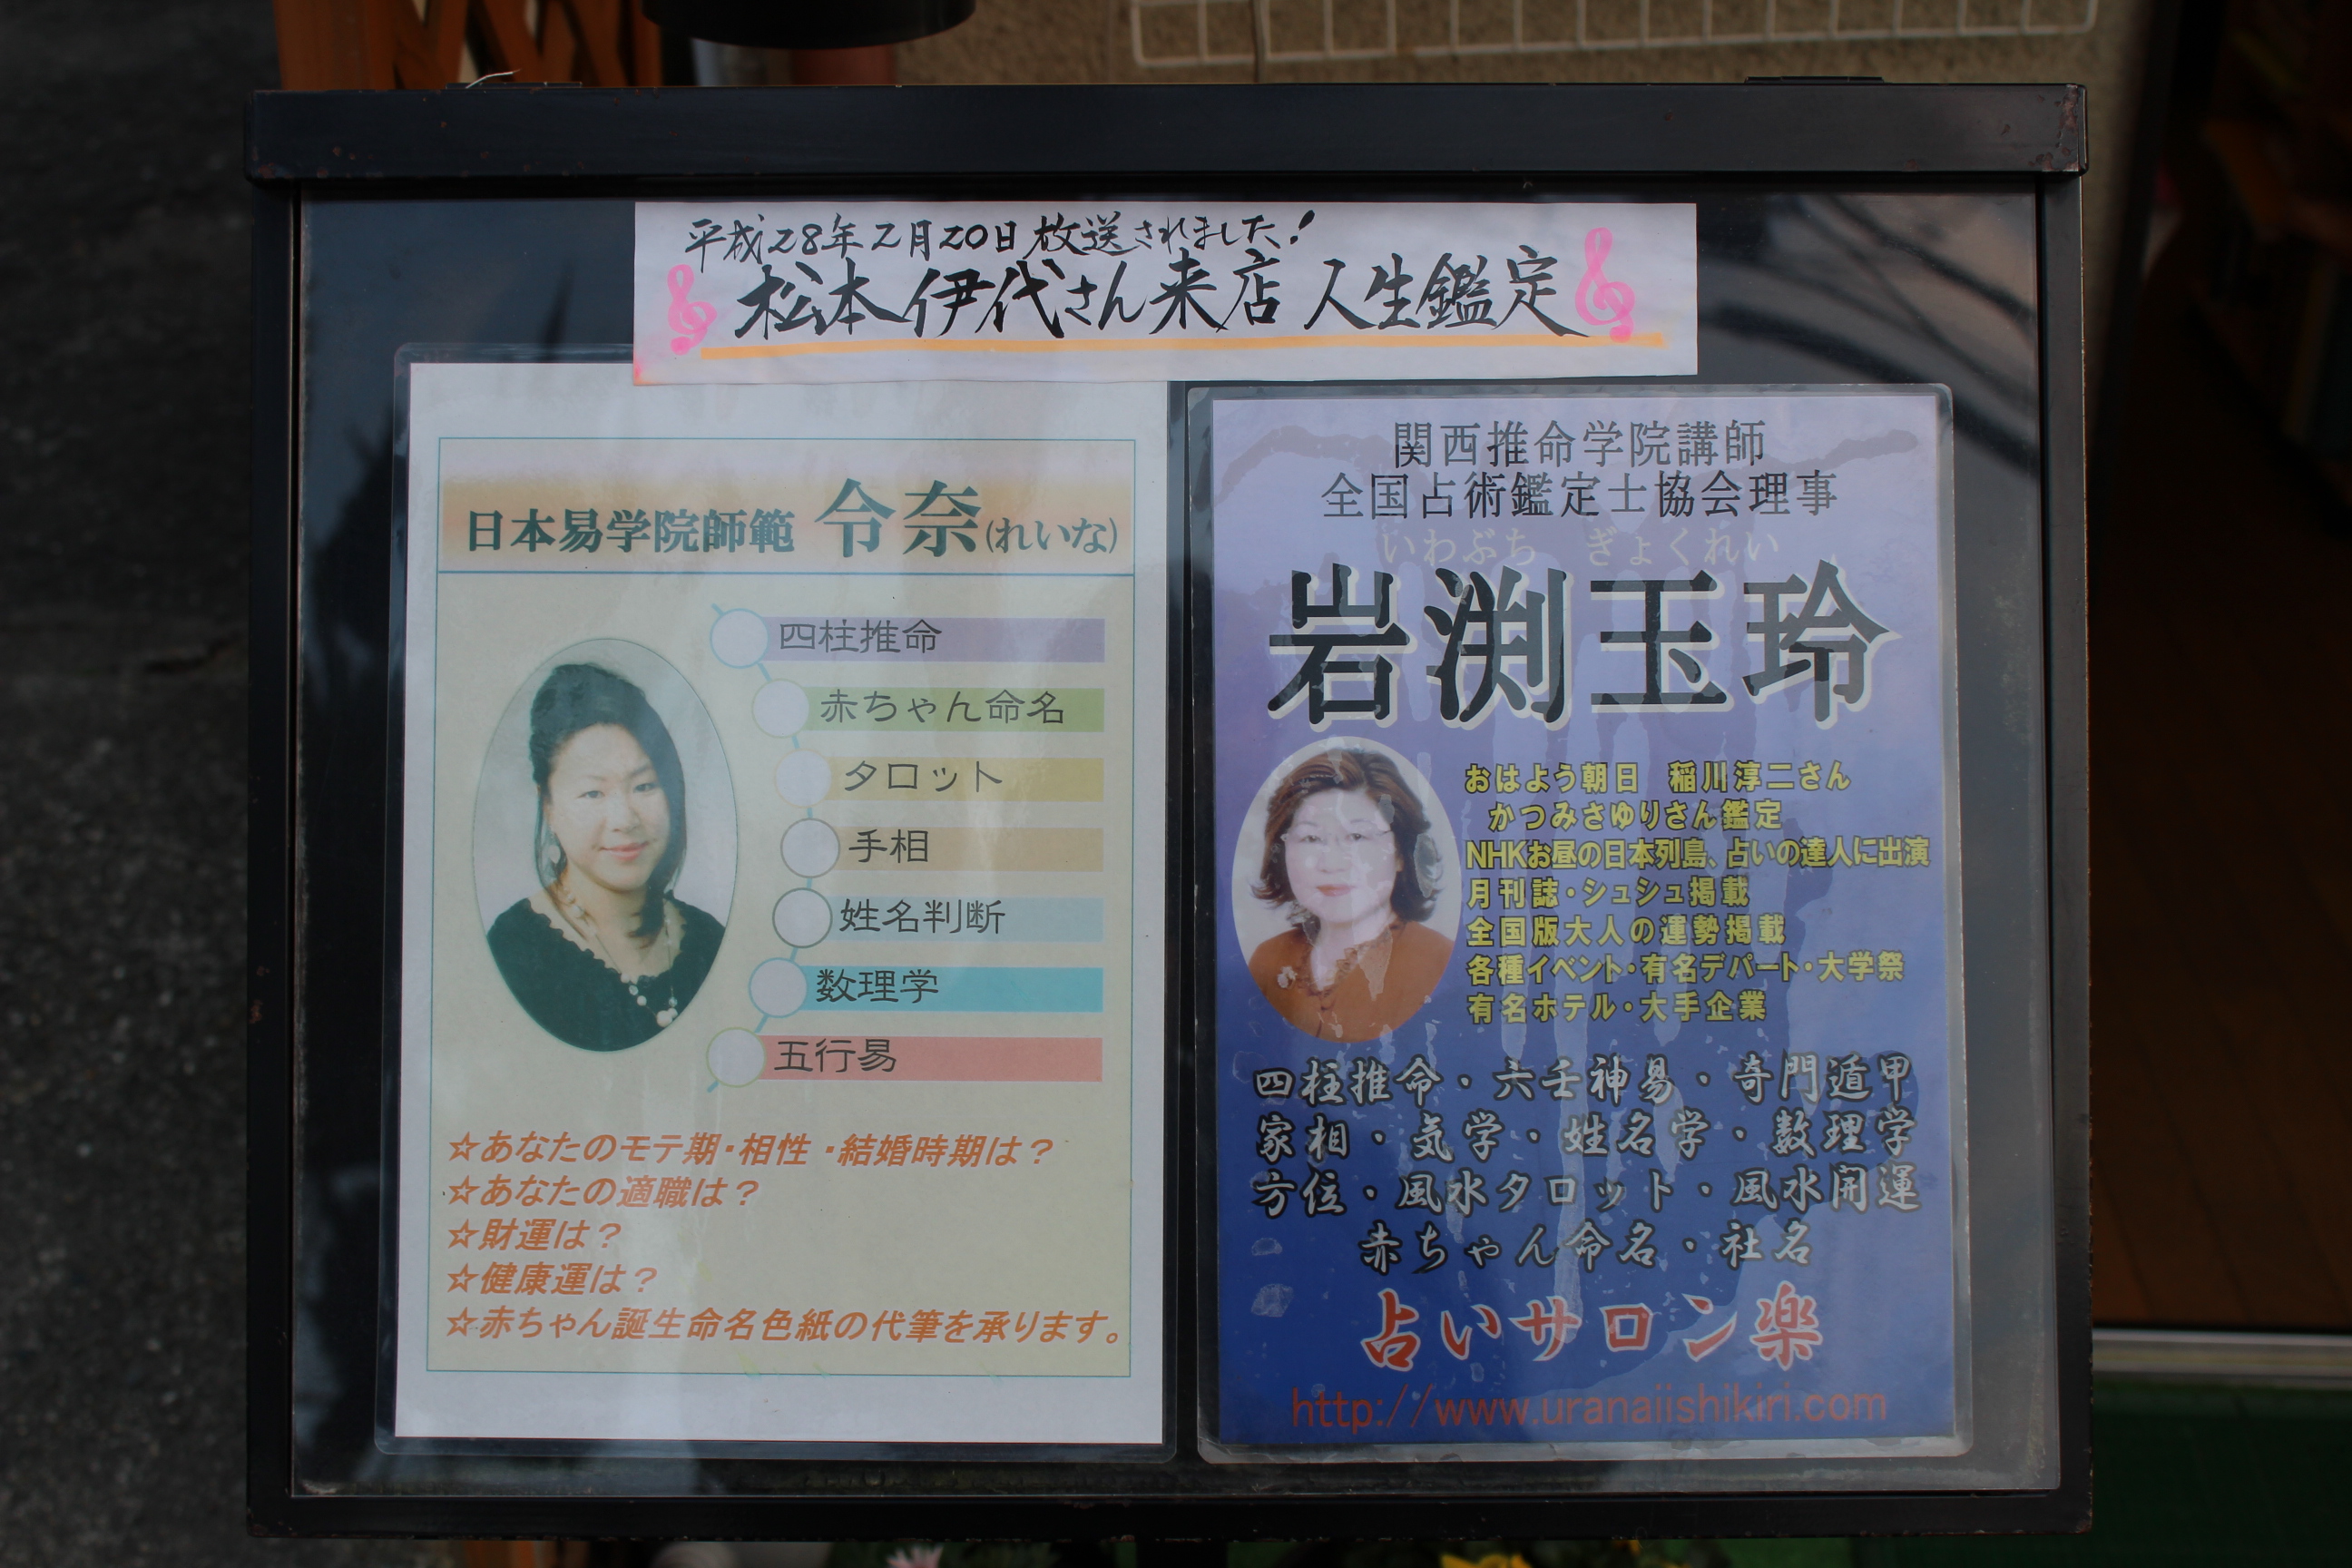 平成28年2月20日放送されました!
松本伊代さん来店 人生鑑定
日本易学院師範 令奈(れいな)
四柱推命
赤ちゃん命名
タロット
手相
姓名判断
数理学
五行易
☆あなたのモテ期・相性・結婚時期は?
☆あなたの適職は?
☆財運は?
☆健康運は?
☆赤ちゃん誕生命名色紙の代筆を承ります。
関西推命学院講師
全国占術鑑定士協会理事
いわぶち ぎょくれい
岩渕玉玲
おはよう朝日 稲川淳二さん
かつみさゆりさん鑑定
NHKお昼の日本列島、占いの達人に出演
月刊誌・シュシュ掲載
全国版大人の運勢掲載
各種イベント・有名デパート・大学祭
有名ホテル・大手企業
四柱推命・六壬神易・奇門遁甲
家相・気学・姓名学・数理学
方位・風水タロット・風水開運
赤ちゃん命名・社名
占いサロン楽
http://www.uranaiishikiri.com